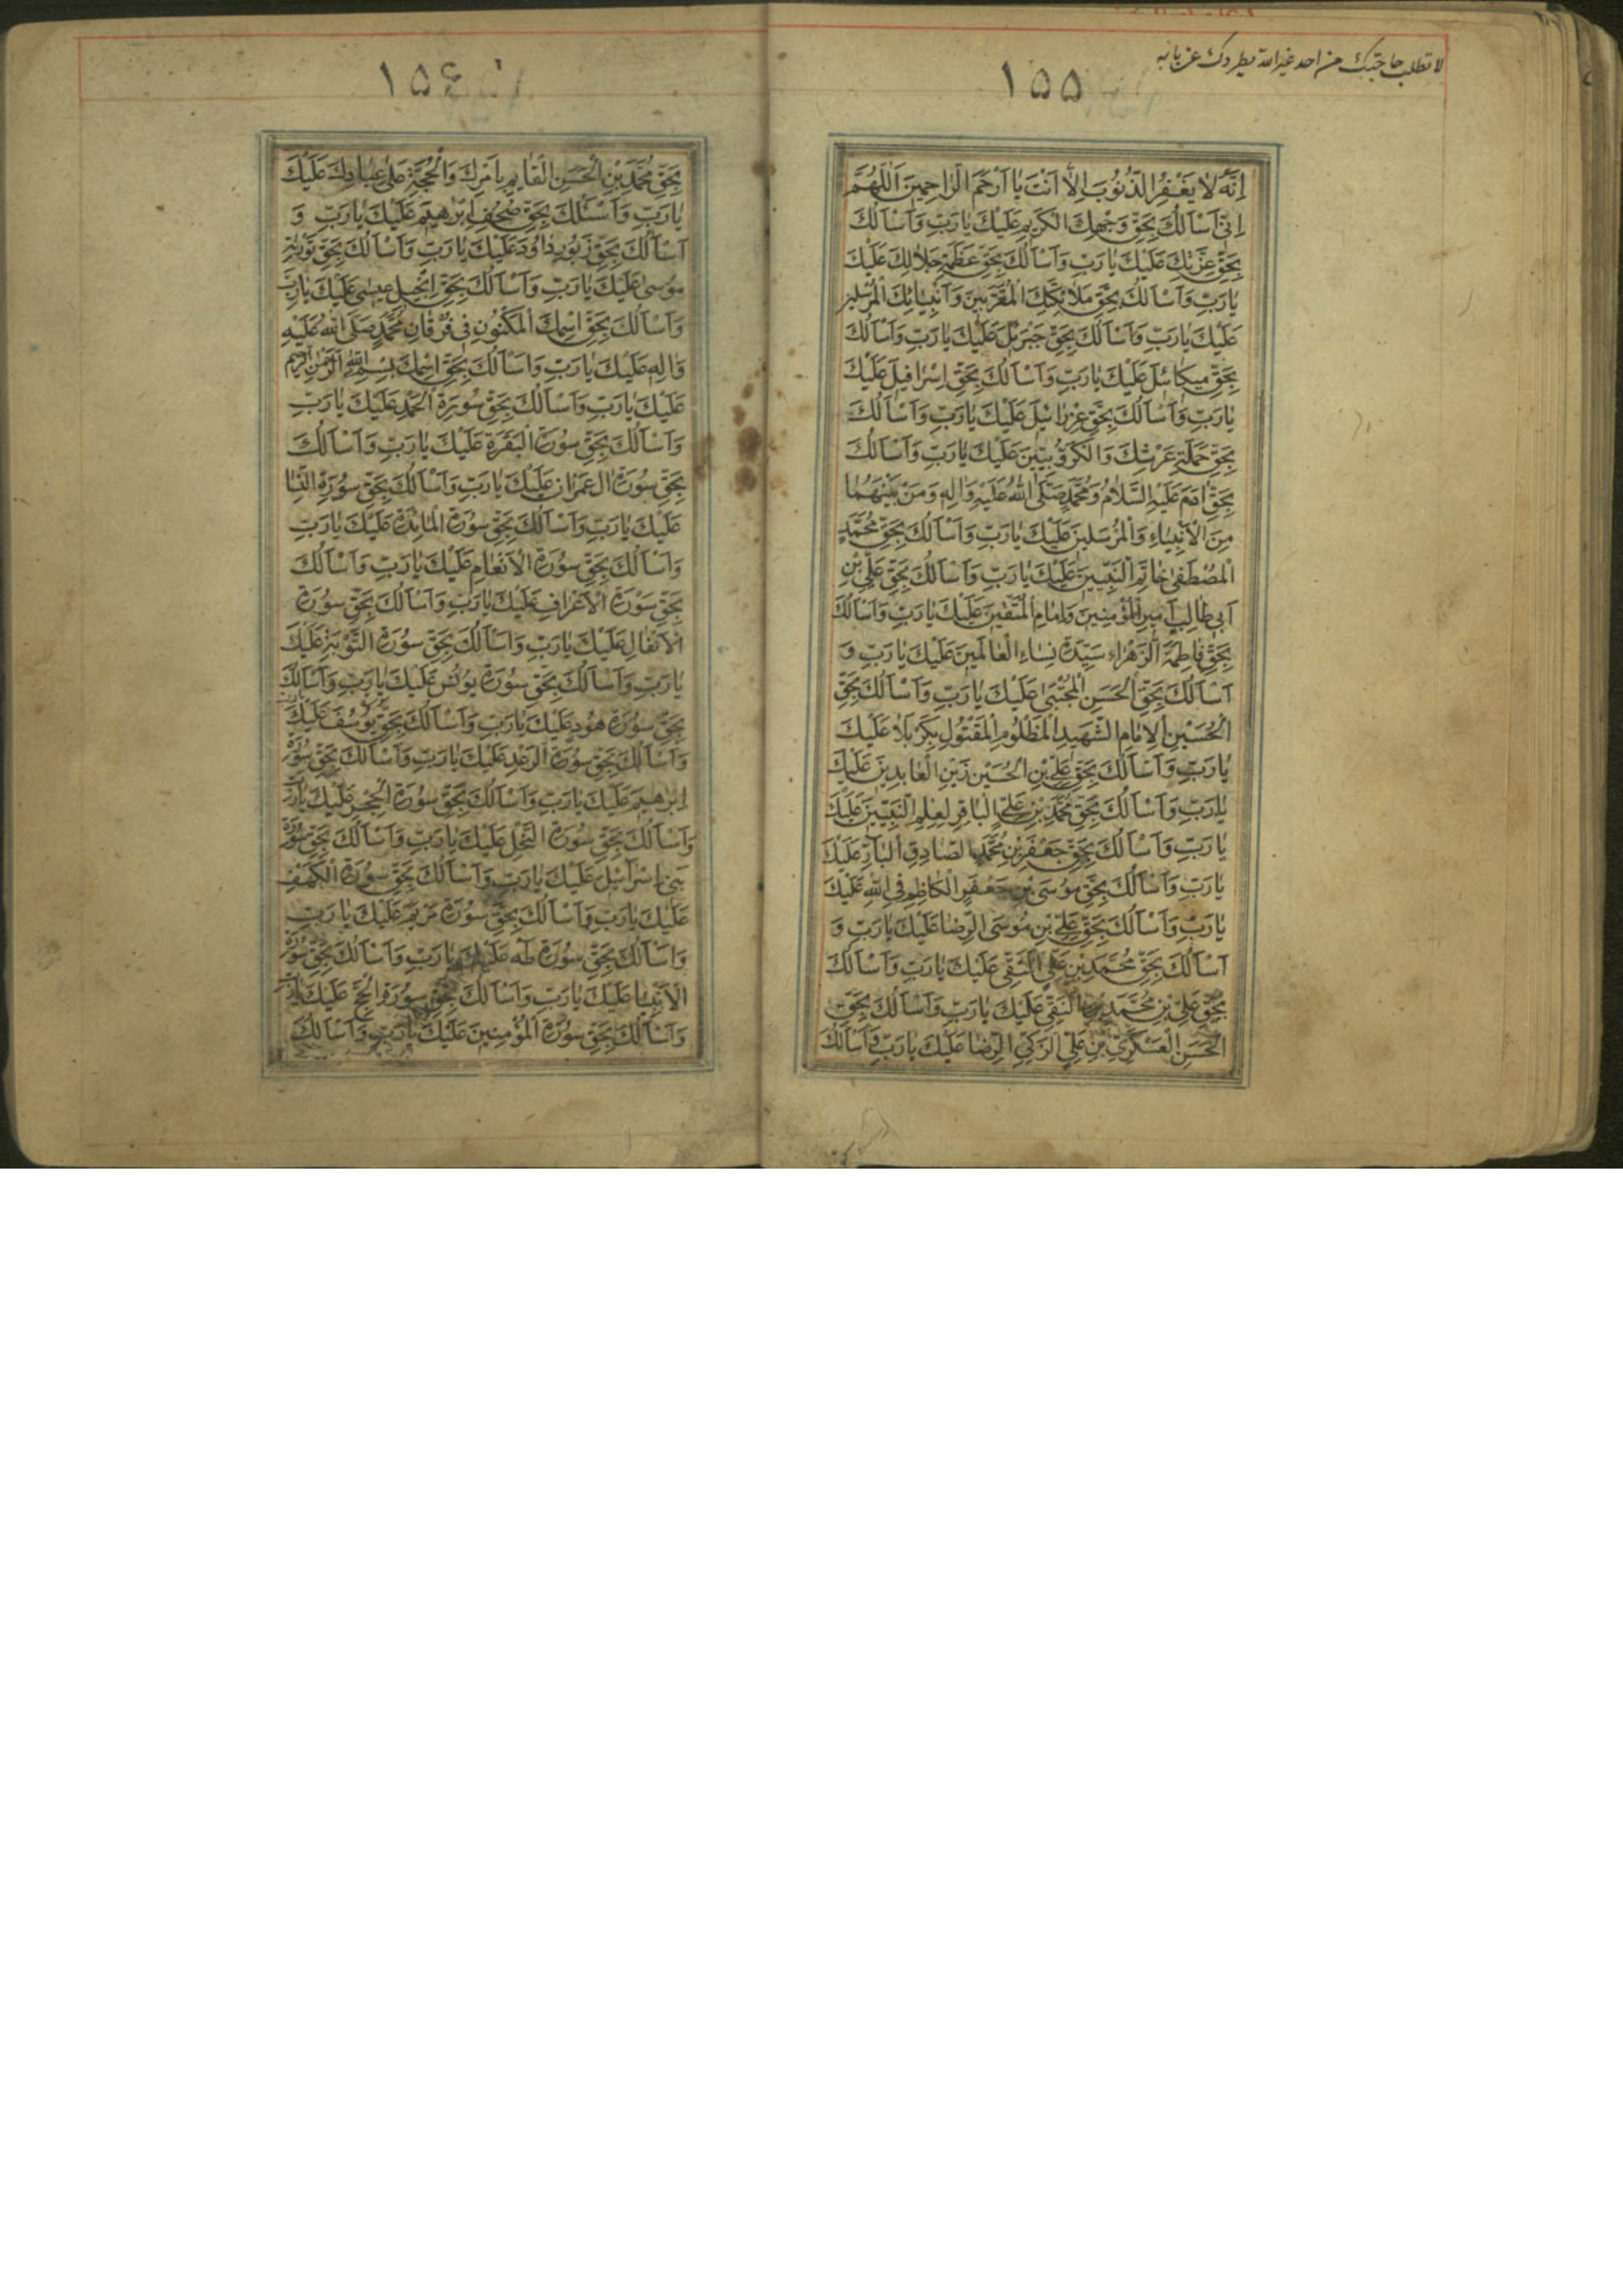 لا تطلب حاجتك من احد غير الله يطردك عن بابه
۱۵۵
اِنَّهُ لا يَغْفِرُ الذُّنُوبَ اِلاّ اَنْتَ يا اَرْحَمَ الرّاحِمينَ اَللّهُمَّ
اِنّى اَسْاَلُكَ بِحَقِّ وَجْهِكَ الْكَريمِ عَلَيْكَ يا رَبِّ وَاَسْاَلُكَ
بِحَقِّ عِزَّتِكَ عَلَيْكَ يا رَبِّ وَاَسْاَلُكَ بِحَقِّ عَظَمَةِ جَلالِكَ عَلَيْكَ
يا رَبِّ وَاَسْاَلُكَ بِحَقِّ مَلائِكَتِكَ الْمُقَرَّبينَ وَاَنْبِيائِكَ الْمُرْسَلينَ
عَلَيْكَ يا رَبِّ وَاَسْاَلُكَ بِحَقِّ جَبْرَئيلَ عَلَيْكَ يا رَبِّ وَاَسْاَلُكَ
بِحَقِّ ميكائيلَ عَلَيْكَ يا رَبِّ وَاَسْاَلُكَ بِحَقِّ اِسْرافيلَ عَلَيْكَ
يا رَبِّ وَاَسْاَلُكَ بِحَقِّ عِزْرائيلَ عَلَيْكَ يا رَبِّ وَاَسْاَلُكَ
بِحَقِّ حَمَلَةِ عَرْشِكَ وَالْكَرُّوبيّينَ عَلَيْكَ يا رَبِّ وَاَسْاَلُكَ
بِحَقِّ ادَمَ عَلَيْهِ السَّلامُ وَمُحَمَّدٍ صَلَّى اللهُ عَلَيْهِ وَالِهِ وَمَنْ بَيْنَهُما
مِنَ الْاَنْبِياءِ وَالْمُرْسَلينَ عَلَيْكَ يا رَبِّ وَاَسْاَلُكَ بِحَقِّ مُحَمَّدٍ
الْمُصْطَفى خاتَمِ النَّبِيّينَ عَلَيْكَ يا رَبِّ وَاَسْاَلُكَ بِحَقِّ عَلِيِّ بْنِ
اَبي طالِبٍ اَميرِ الْمُؤْمِنينَ وَاِمامِ الْمُتَّقينَ عَلَيْكَ يا رَبِّ وَاَسْاَلُكَ
بِحَقِّ فاطِمَةَ الزَّهْراءِ سَيِّدَةِ نِساءِ الْعالَمينَ عَلَيْكَ يا رَبِّ وَ
اَسْاَلُكَ بِحَقِّ الْحَسَنِ الْمُجْتَبى عَلَيْكَ يا رَبِّ وَاَسْاَلُكَ بِحَقِّ
الْحُسَيْنِ الْاِمامِ الشَّهيدِ الْمَظْلُومِ الْمَقْتُولِ بِكَرْبَلاءَ عَلَيْكَ
يا رَبِّ وَاَسْاَلُكَ بِحَقِّ عَلِيِّ بْنِ الْحُسَيْنِ زَيْنِ الْعابِدينَ عَلَيْكَ
يا رَبِّ وَاَسْاَلُكَ بِحَقِّ مُحَمَّدِ بْنِ عَلِيٍّ الْباقِرِ لِعِلْمِ النَّبِيّينَ عَلَيْكَ
يا رَبِّ وَاَسْاَلُكَ بِحَقِّ جَعْفَرِ بْنِ مُحَمَّدٍ الصّادِقِ الْبارِّ عَلَيْكَ
يا رَبِّ وَاَسْاَلُكَ بِحَقِّ مُوسَى بْنِ جَعْفَرٍ الْكاظِمِ فِي اللهِ عَلَيْكَ
يا رَبِّ وَاَسْاَلُكَ بِحَقِّ عَلِيِّ بْنِ مُوسَى الرِّضا عَلَيْكَ يا رَبِّ وَ
اَسْاَلُكَ بِحَقِّ مُحَمَّدِ بْنِ عَلِيٍّ التَّقِيِّ عَلَيْكَ يا رَبِّ وَاَسْاَلُكَ
بِحَقِّ عَلِيِّ بْنِ مُحَمَّدٍ النَّقِيِّ عَلَيْكَ يا رَبِّ وَاَسْاَلُكَ بِحَقِّ
الْحَسَنِ الْعَسْكَرِيِّ بْنِ عَلِيٍّ الزَّكِيِّ الرِّضا عَلَيْكَ يا رَبِّ وَاَسْاَلُكَ
۱۵۶
بِحَقِّ مُحَمَّدِ بْنِ الْحَسَنِ الْقايِمِ بِاَمْرِكَ وَالْحُجَّةِ عَلى عِبادِكَ عَلَيْكَ
يا رَبِّ وَاَسْئَلُكَ بِحَقِّ صُحُفِ اِبْرهيمَ عَلَيْكَ يا رَبِّ وَ
اَسْاَلُكَ بِحَقِّ زَبُورِ داوُدَ عَلَيْكَ يا رَبِّ وَاَسْاَلُكَ بِحَقِّ تَوْرٰيةِ
مُوسى عَلَيْكَ يا رَبِّ وَاَسْاَلُكَ بِحَقِّ اِنْجيلِ عيسى عَلَيْكَ يا رَبِّ
وَاَسْاَلُكَ بِحَقِّ اسْمِكَ الْمَكْنُونِ في فُرْقانِ مُحَمَّدٍ صَلَّى اللهُ عَلَيْهِ
وَالِهِ عَلَيْكَ يا رَبِّ وَاَسْاَلُكَ بِحَقِّ اسْمِكَ بِسْمِ اللهِ الرَّحْمنِ الرَّحيمِ
عَلَيْكَ يا رَبِّ وَاَسْاَلُكَ بِحَقِّ سُورَةِ الْحَمْدِ عَلَيْكَ يا رَبِّ
وَاَسْاَلُكَ بِحَقِّ سُورَةِ الْبَقَرَةِ عَلَيْكَ يا رَبِّ وَاَسْاَلُكَ
بِحَقِّ سُورَةِ الِ عِمْرانَ عَلَيْكَ يا رَبِّ وَاَسْاَلُكَ بِحَقِّ سُورَةِ النِّسا
عَلَيْكَ يا رَبِّ وَاَسْاَلُكَ بِحَقِّ سُورَةِ الْمائِدَةِ عَلَيْكَ يا رَبِّ
وَاَسْاَلُكَ بِحَقِّ سُورَةِ الْاَنْعامِ عَلَيْكَ يا رَبِّ وَاَسْاَلُكَ
بِحَقِّ سُورَةِ الْاَعْرافِ عَلَيْكَ يا رَبِّ وَاَسْاَلُكَ بِحَقِّ سُورَةِ
الْاَنْفالِ عَلَيْكَ يا رَبِّ وَاَسْاَلُكَ بِحَقِّ سُورَةِ التَّوْبَةِ عَلَيْكَ
يا رَبِّ وَاَسْاَلُكَ بِحَقِّ سُورَةِ يُونُسَ عَلَيْكَ يا رَبِّ وَاَسْاَلُكَ
بِحَقِّ سُورَةِ هُودٍ عَلَيْكَ يا رَبِّ وَاَسْاَلُكَ بِحَقِّ يُوسُفَ عَلَيْكَ يا رب
وَاَسْاَلُكَ بِحَقِّ سُورَةِ الرَّعْدِ عَلَيْكَ يا رَبِّ وَاَسْاَلُكَ بِحَقِّ سُورَةِ
اِبْرهيمَ عَلَيْكَ يا رَبِّ وَاَسْاَلُكَ بِحَقِّ سُورَةِ الْحِجْرِ عَلَيْكَ يا رَبِّ
وَاَسْاَلُكَ بِحَقِّ سُورَةِ النَّحْلِ عَلَيْكَ يا رَبِّ وَاَسْاَلُكَ بِحَقِّ سُورَةِ
بَني اِسْرآئيلَ عَلَيْكَ يا رَبِّ وَاَسْاَلُكَ بِحَقِّ سُورَةِ الْكَهْفِ
عَلَيْكَ يا رَبِّ وَاَسْاَلُكَ بِحَقِّ سُورَةِ مَرْيَمَ عَلَيْكَ يا رَبِّ
وَاَسْاَلُكَ بِحَقِّ سُورَةِ طه عَلَيْكَ يا رَبِّ وَاَسْاَلُكَ بِحَقِّ سُورَةِ
الْاَنْبِيا عَلَيْكَ يا رَبِّ وَاَسْاَلُكَ بِحَقِّ سُورَةِ الْحَجِّ عَلَيْكَ يا رَبِّ
وَاَسْاَلُكَ بِحَقِّ سُورَةِ الْمُؤْمِنينَ عَلَيْكَ يا رَبِّ وَاَسْاَلُكَ